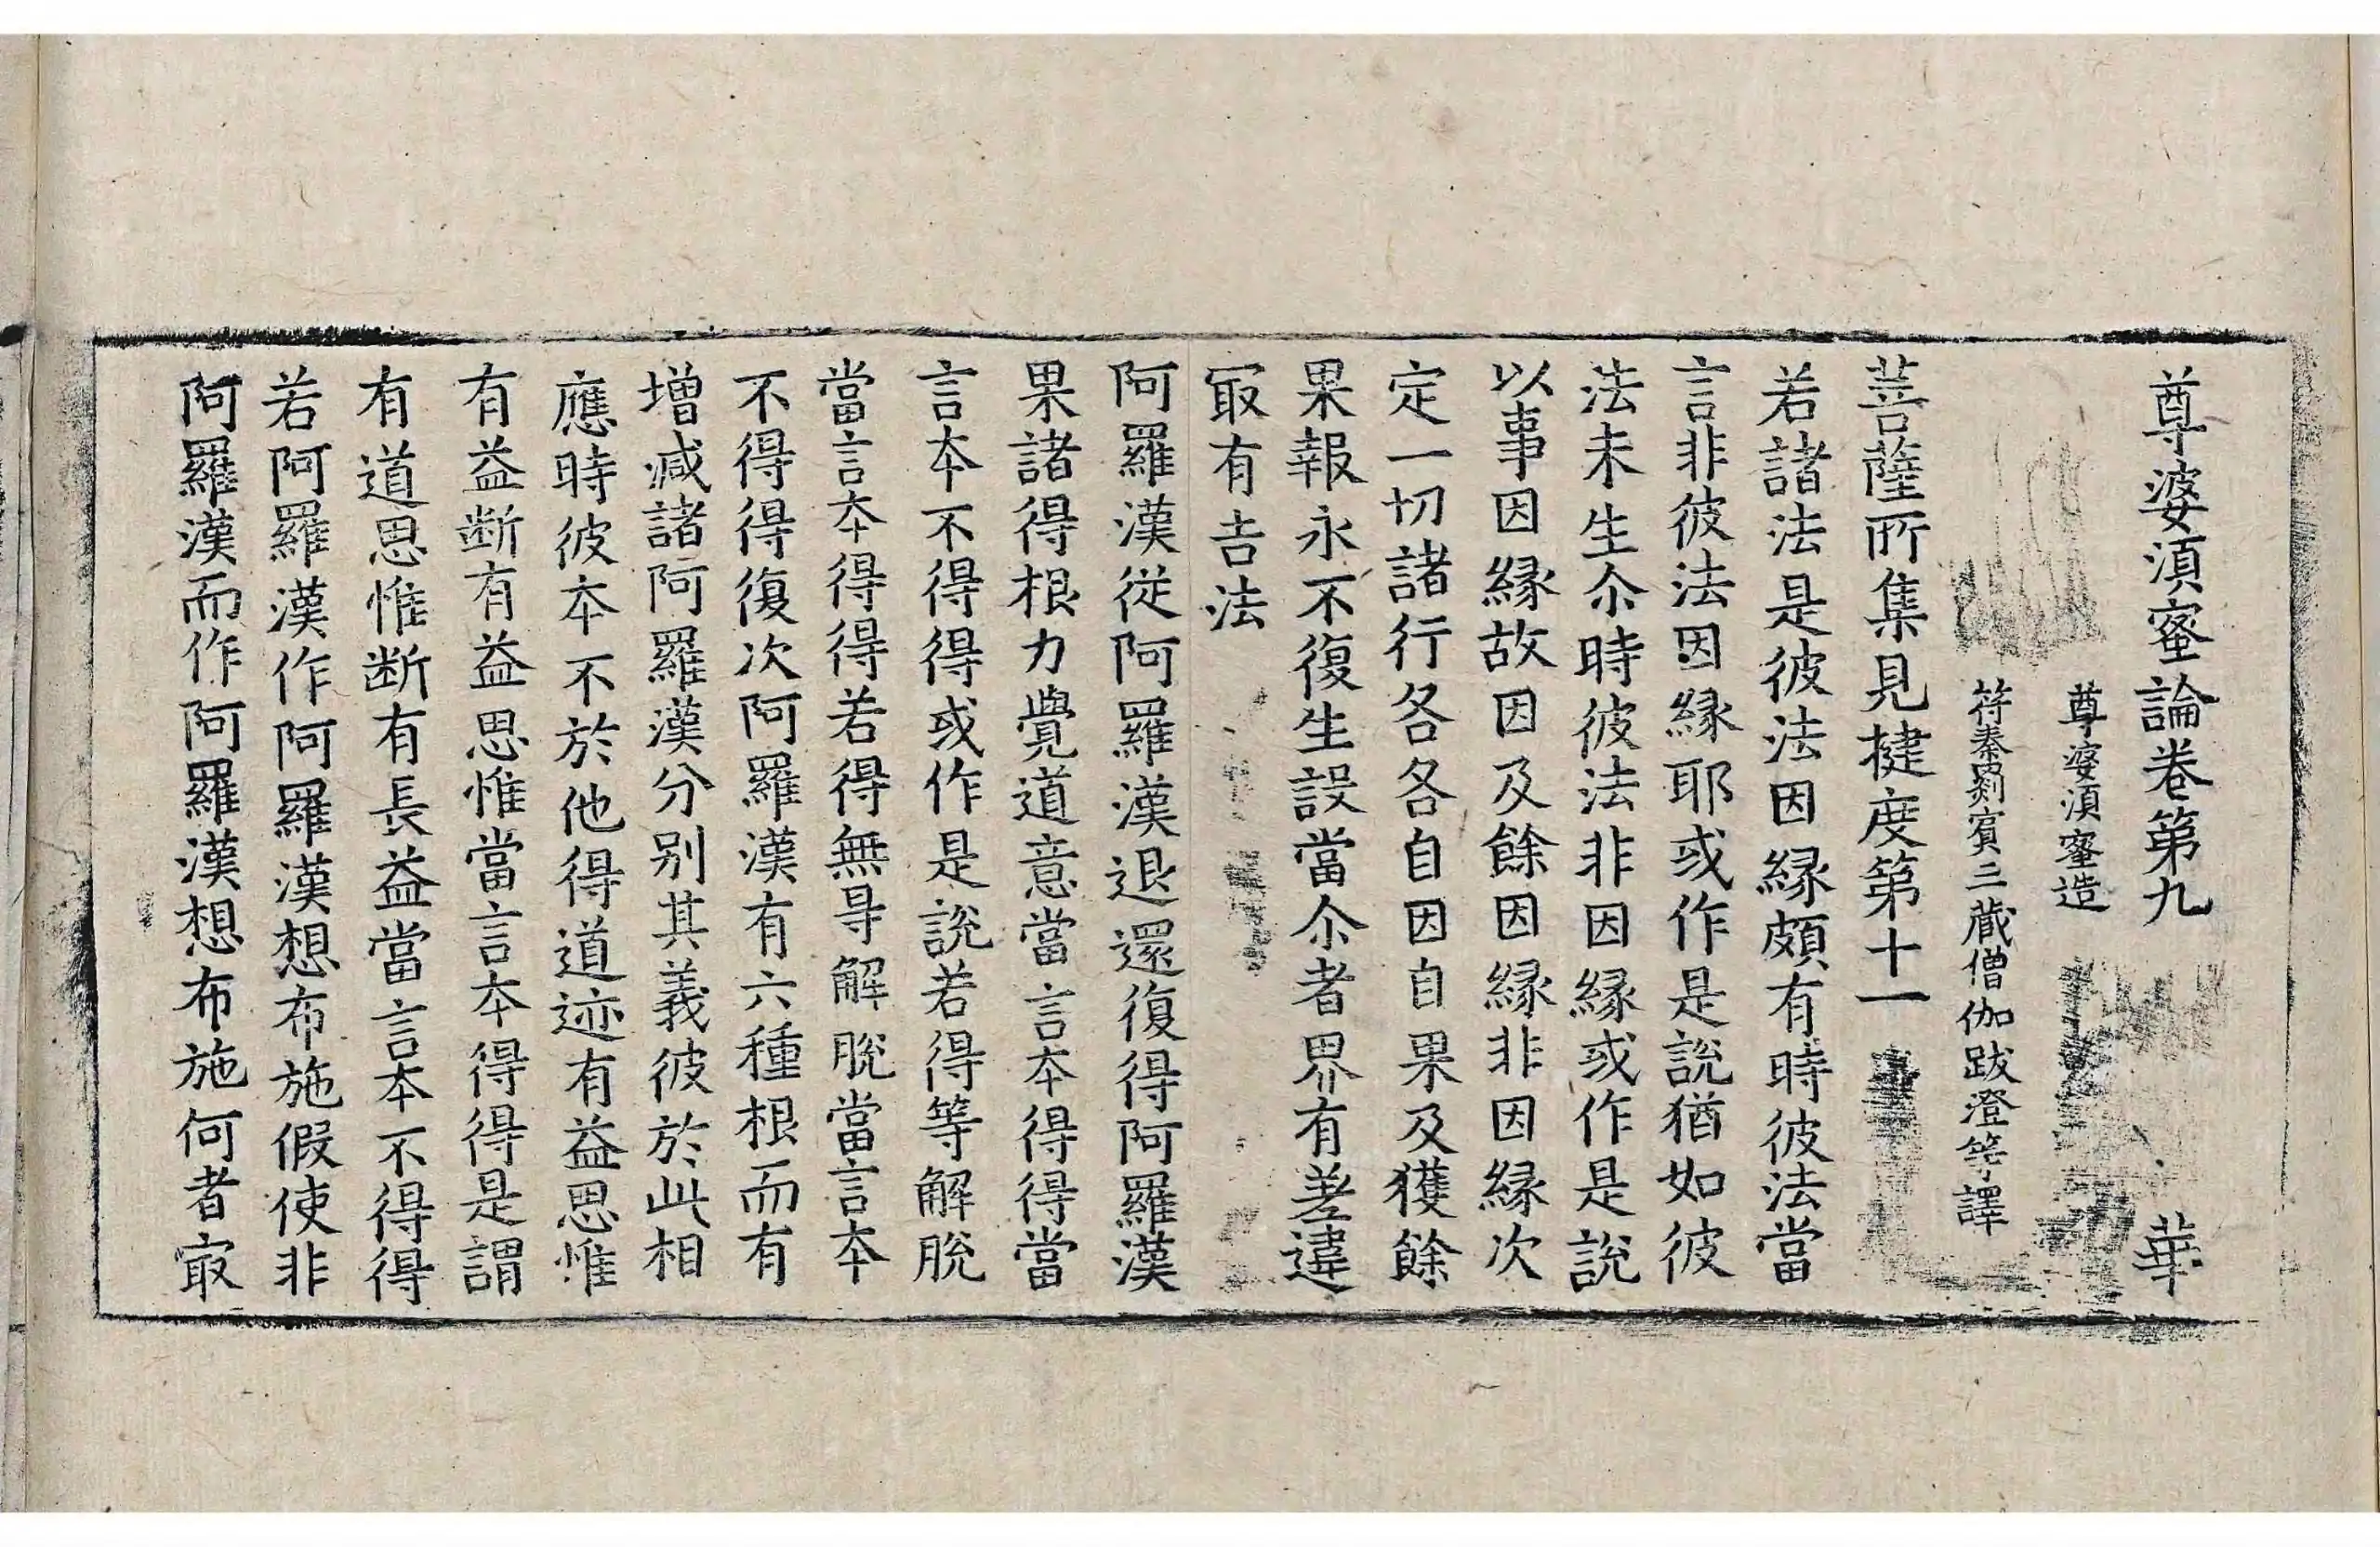 尊婆湏蜜論卷第九　華
尊婆湏蜜造
符秦罽賓三藏僧伽跋澄等譯
菩薩所集見揵度第十一
若諸法是彼法因縁頗有時彼法當
言非彼法因縁耶或作是說猶如彼
法未生尒時彼法非因縁或作是說
以事因縁故因及餘因縁非因縁次
定一切諸行各各自因自果及獲餘
果報永不復生設當尒者界有差違
冣有吉法
阿羅漢從阿羅漢退還復得阿羅漢
果諸得根力覺道意當言夲得得當
言夲不得得或作是說若得等解脫
當言夲得得若得無㝵解脫當言夲
不得得復次阿羅漢有六種根而有
增减諸阿羅漢分別其義彼於此相
應時彼夲不於他得道迹有益思惟
有益断有益思惟當言夲得得是謂
有道思惟断有長益當言夲不得得
若阿羅漢作阿羅漢想布施假使非
阿羅漢而作阿羅漢想布施何者㝡